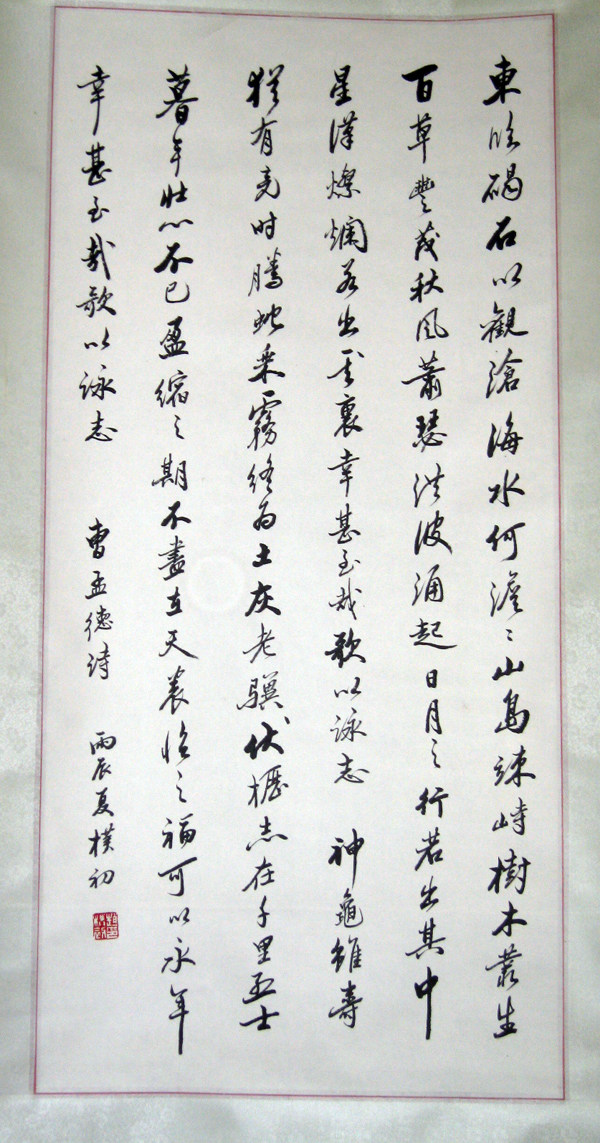 東臨碣石以觀滄海水何澹〻山島竦峙樹木叢生
百草豐茂秋風蕭瑟洪波涌起日月之行若出其中
星漢燦爛若出其裏幸甚至哉歌以詠志 神龜雖壽
猶有竟時騰蛇乘霧終為土灰老驥伏櫪志在千里烈士
暮年壯心不已盈縮之期不盡在天養怡之福可以永年
幸甚至哉歌以詠志 曹孟德詩 丙辰夏樸初